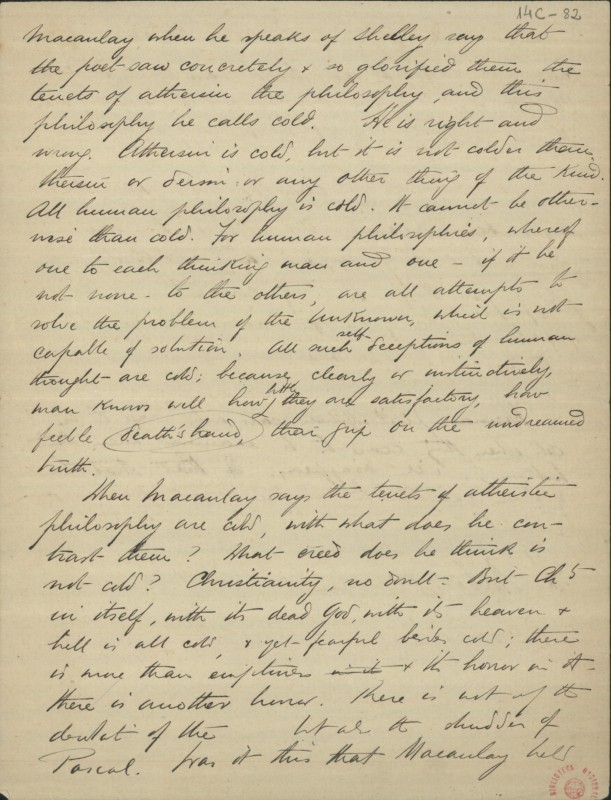 14C-82
Macaulay when he speaks of Shelley say that
the poet saw concretely & so glorified them the
tenets of atheism the philosophy, and this
philosophy he calls cold. He is right and
wrong. Atheism is cold, but it is not colder than
theism or deism or any other thing of the kind.
All human philosophy is cold. It cannot be other-
wise than cold. For human philosophies, whereof
one to each thinking man and one - if it be
not none - to the others, are all attempts to
solve the problem of the Unknown, which is not
capable of solution. All such self-deceptions of human
thought are cold; because, clearly or instinctively,
man knows well how little they are satisfactory, how
feeble death's hand, their grip on the undreamed
truth.
When Macaulay says the tenets of atheistic
philosophy are cold, with what does he con-
trast them? What creed does he think is
not cold? Christianity, no doubt - But Ch
in itself, with its dead God, with its heaven &
hell is all cold, & yet fearful besides cold; there
is more than emptiness & its horror in it -
there is another horror. There is not the
of the the shudder of
Pascal. Was it this that Macaulay held